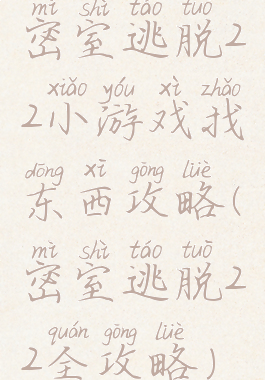 mì shì táo tuō
密室逃脱2
xiǎo yóu xì zhǎo
2小游戏找
dōng xī gōng lüè
东西攻略(
mì shì táo tuō
密室逃脱2
quán gōng lüè
2全攻略)